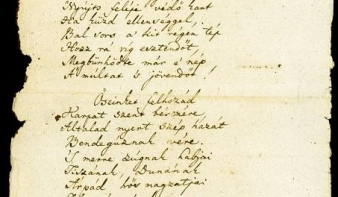 Nyújts feléje védő kart
Ha küzd ellenséggel,
Bal sors a' kit régen tép
Hozz rá víg esztendőt,
Megbűnhödte már e' nép
A' multat 's jövendőt!
Őseinket felhozád
Kárpát szent bérczére,
Általad nyert szép hazát
Bendegúznak vére.
'S merre zúgnak habjai
Tiszának, Dunának
Árpád hős magzatjai